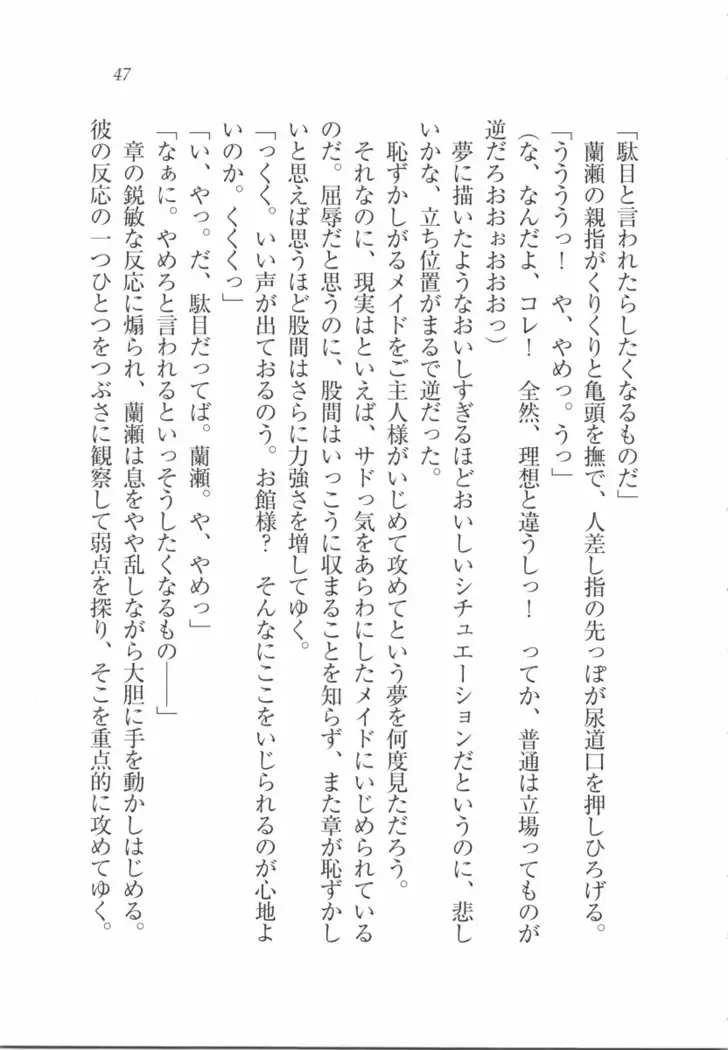 47
「駄目と言われたらしたくなるものだ」
蘭瀬の親指がくりくりと亀頭を撫で、人差し指の先っぽが尿道口を押しひろげる。
「ううううっ！　や、やめっ。うっ」
（な、なんだよ、コレ！　全然、理想と違うしっ！　ってか、普通は立場ってものが
逆だろおおぉおおおっ）
夢に描いたようなおいしすぎるほどおいしいシチュエーションだというのに、悲し
いかな、立ち位置がまるで逆だった。
恥ずかしがるメイドをご主人様がいじめて攻めてという夢を何度見ただろう。
それなのに、現実はといえば、サドっ気をあらわにしたメイドにいじめられている
のだ。屈辱だと思うのに、股間はいっこうに収まることを知らず、また章が恥ずかし
いと思えば思うほど股間はさらに力強さを増してゆく。
「っくく。いい声が出ておるのう。お館様？　そんなにここをいじられるのが心地よ
いのか。くくくっ」
「い、やっ。だ、駄目だってば。蘭瀬。や、やめっ」
「なぁに。やめろと言われるといっそうしたくなるもの――」
章の鋭敏な反応に煽られ、蘭瀬は息をやや乱しながら大胆に手を動かしはじめる。
彼の反応の一つひとつをつぶさに観察して弱点を探り、そこを重点的に攻めてゆく。